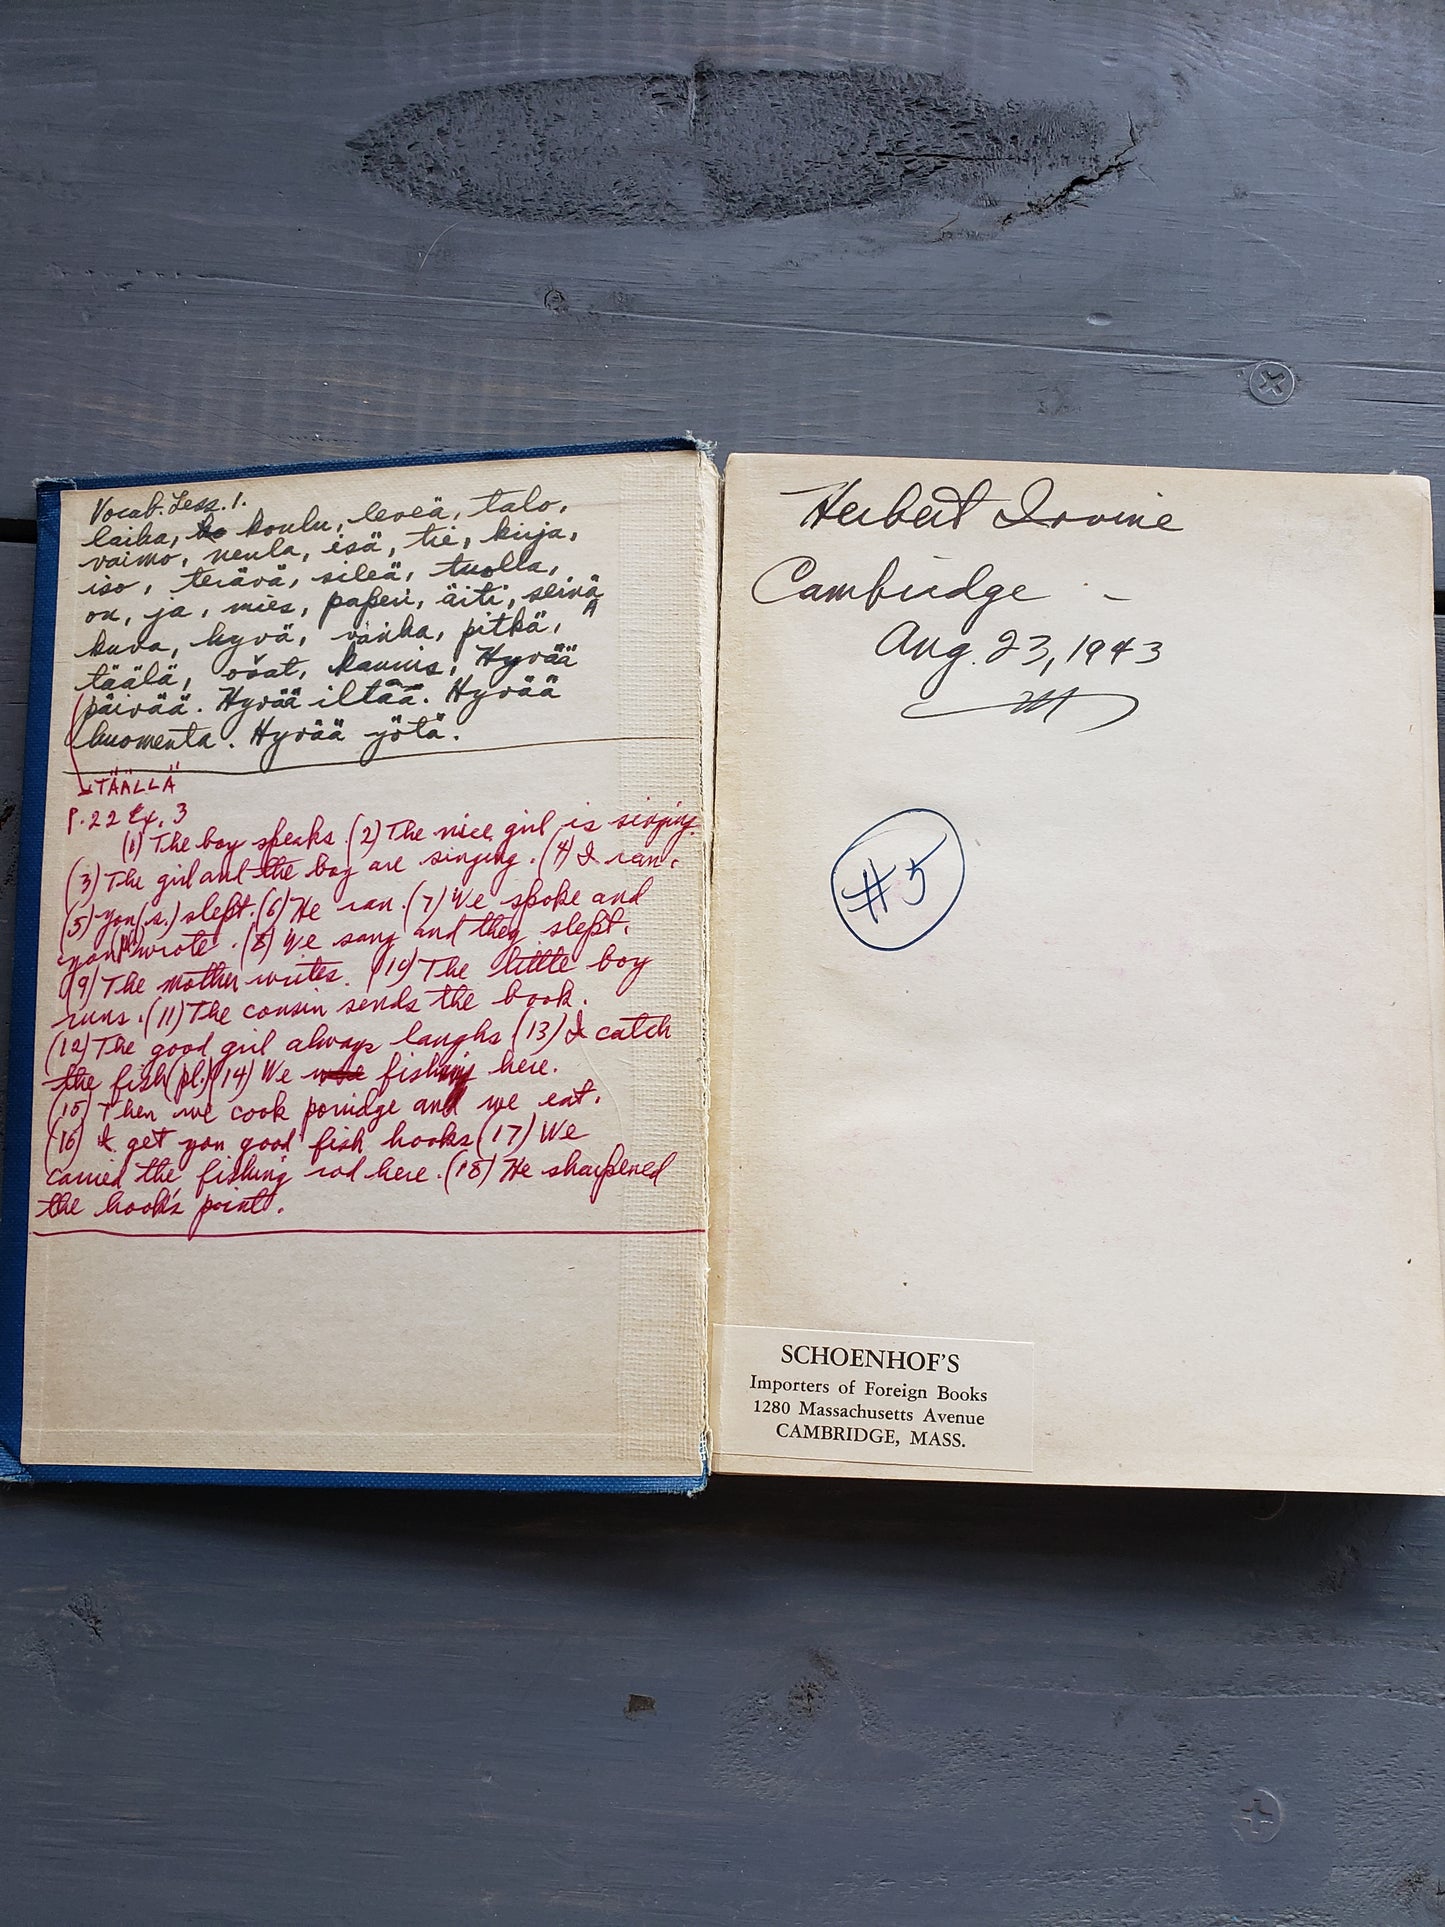 Vocab. Less. 1.
laiha, koulu, leveä, talo,
vaimo, neula, isä, tie, kirja,
iso, terävä, sileä, tuolla,
on, ja, mies, paperi, äiti, seinä
kuva, hyvä, vanha, pitkä,
täälä, ovat, kaunis, Hyvää
päivää. Hyvää iltaa. Hyvää
huomenta. Hyvää yötä.
TÄÄLLÄ
P. 22 Ex. 3
(1) The boy speaks. (2) The nice girl is singing.
(3) The girl and the boy are singing. (4) I ran.
(5) you (s.) slept. (6) He ran. (7) We spoke and
you (pl.) wrote. (8) We sang and they slept.
(9) The mother writes. (10) The little boy
runs. (11) The cousin sends the book.
(12) The good girl always laughs (13) I catch
the fish (pl.) (14) We fishing here.
(15) Then we cook porridge and we eat.
(16) I get you good fish hooks (17) We
carried the fishing rod here. (18) He sharpened
the hook's point.
Herbert Irvine
Cambridge -
Aug. 23, 1943
#5
SCHOENHOF'S
Importers of Foreign Books
1280 Massachusetts Avenue
CAMBRIDGE, MASS.